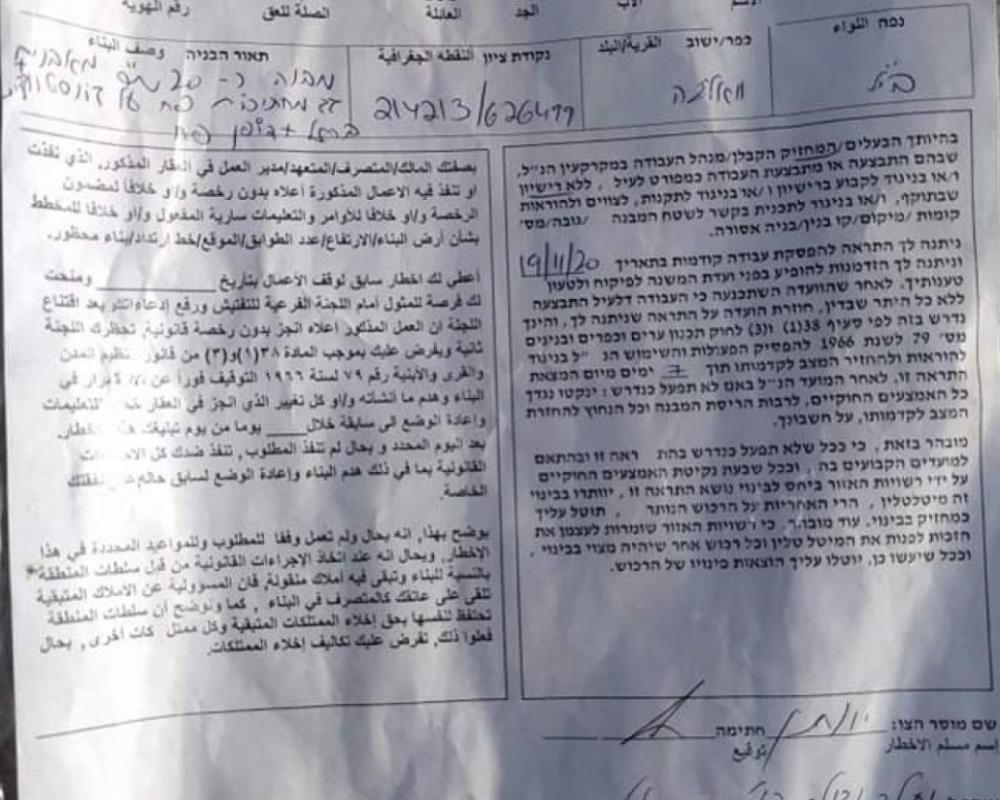 רقم الهوية
الصلة للعق
العائلة
الجد
الاب
الاسم
נפה اللواء
כפר/ישוב القرية/البلد
נקודת ציון النقطه الجغرافية
תאור הבניה وصف البناء
214213/626499
בהיותך הבעלים/המחזיק הקבלן/מנהל העבודה במקרקעין הנ"ל,
שבהם התבצעה או מתבצעת העבודה כמפורט לעיל, ללא רישיון
ו/או בניגוד לקבוע ברישיון ו/או בניגוד לתקנות, לצווים ולהוראות
שבתוקף, ו/או בניגוד לתכנית בקשר לשטח המבנה /גובה/מס'
קומות /מיקום/קו בנין/בניה אסורה.
ניתנה לך התראה להפסקת עבודה קודמות בתאריך 19/11/20
וניתנה לך הזדמנות להופיע בפני ועדת המשנה לפיקוח ולטעון
טענותיך. לאחר שהוועדה השתכנעה כי העבודה דלעיל התבצעה
ללא כל היתר שבדין, חוזרת הועדה על התראה שניתנה לך, והינך
נדרש בזה לפי סעיף 38(1) ו(3) לחוק תכנון ערים וכפרים ובנינים
מס' 79 לשנת 1966 להפסיק הפעולות והשימוש הנ"ל בניגוד
להוראות ולהחזיר המצב לקדמותו תוך 7 ימים מיום המצאת
התראה זו, לאחר המועד הנ"ל באם לא תפעל כנדרש: ינקטו נגדך
כל האמצעים החוקיים, לרבות הריסת המבנה וכל הנחוץ להחזרת
המצב לקדמותו, על חשבונך.
מובהר בזאת, כי ככל שלא תפעל כנדרש בהת ראה זו ובהתאם
למועדים הקבועים בה, וככל שבעת נקיטת האמצעים החוקיים
על ידי רשויות האזור ביחס לבינוי נושא התראה זו, יוותרו בבינוי
זה מיטלטלין, הרי האחריות על הרכוש הנותר, תוטל עליך
כמחזיק בבינוי. עוד מובהר, כי רשויות האזור שומרות לעצמן את
הזכות לפנות את המיטל טלין וכל רכוש אחר שיהיה מצוי בבינוי,
וככל שיעשו כן, יוטלו עליך הוצאות פינויו של הרכוש.
بصفتك المالك/المتصرف/المتعهد/مدير العمل في العقار المذكور, الذي نفذت
او تنفذ فيه الاعمال المذكورة أعلاه بدون رخصة و/او خلافا لمضمون
الرخصة و/او خلافا للأوامر والتعليمات سارية المفعول و/او خلافا للمخطط
بشأن أرض البناء/الارتفاع/عدد الطوابق/الموقع/خط ارتداد/بناء محظور.
أعطي لك اخطار سابق لوقف الأعمال بتاريخ ومنحت
لك فرصة للمثول أمام اللجنة الفرعية للتفتيش ورفع إدعاءاتك, بعد اقتناع
اللجنة ان العمل المذكور أعلاه انجز بدون رخصة قانونية, تحظرك اللجنة
ثانية ويفرض عليك بموجب المادة ٣٨(١)و(٣) من قانون تنظيم المدن
والقرى والأبنية رقم ٧٩ لسنة ١٩٦٦ التوقيف فورا عن
البناء وهدم ما أنشأته و/او كل تغيير الذي انجز في العقار للتعليمات
وإعادة الوضع الى سابقة خلال يوما من يوم تبليغك
بعد اليوم المحدد و بحال لم تنفذ المطلوب, تنفذ ضدك كل
القانونية بما في ذلك هدم البناء وإعادة الوضع لسابق
الخاصة.
يوضح بهذا, انه بحال ولم تعمل وفقا للمطلوب وللمواعيد المحددة في هذا
الاخطار, وبحال انه عند اتخاذ الإجراءات القانونية من قبل سلطات المنطقة
بالنسبة للبناء وتبقى فيه أملاك منقولة, فان المسوولية عن الاملاك المتبقية
تلقى على عاتقك كالمتصرف في البناء, كما ونوضح أن سلطات المنطقة
تحتفظ لنفسها بحق إخلاء الممتلكات المتبقية وكل ممتل كات أخرى, بحال
فعلوا ذلك, تفرض عليك تكاليف إخلاء الممتلكات.
שם מוסר הצו: חתימה
اسم مسلم الاخطار توقيع